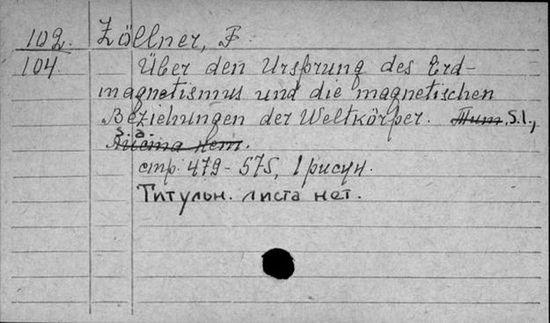 102. Zöllner, F.
104. Über den Ursprung des Erd-
magnetismus und die magnetischen
Beziehungen der Weltkörper. Тит. S.l.,
s.a.
листа нет.
стр. 479-575, 1 рисун.
Титульн. листа нет.